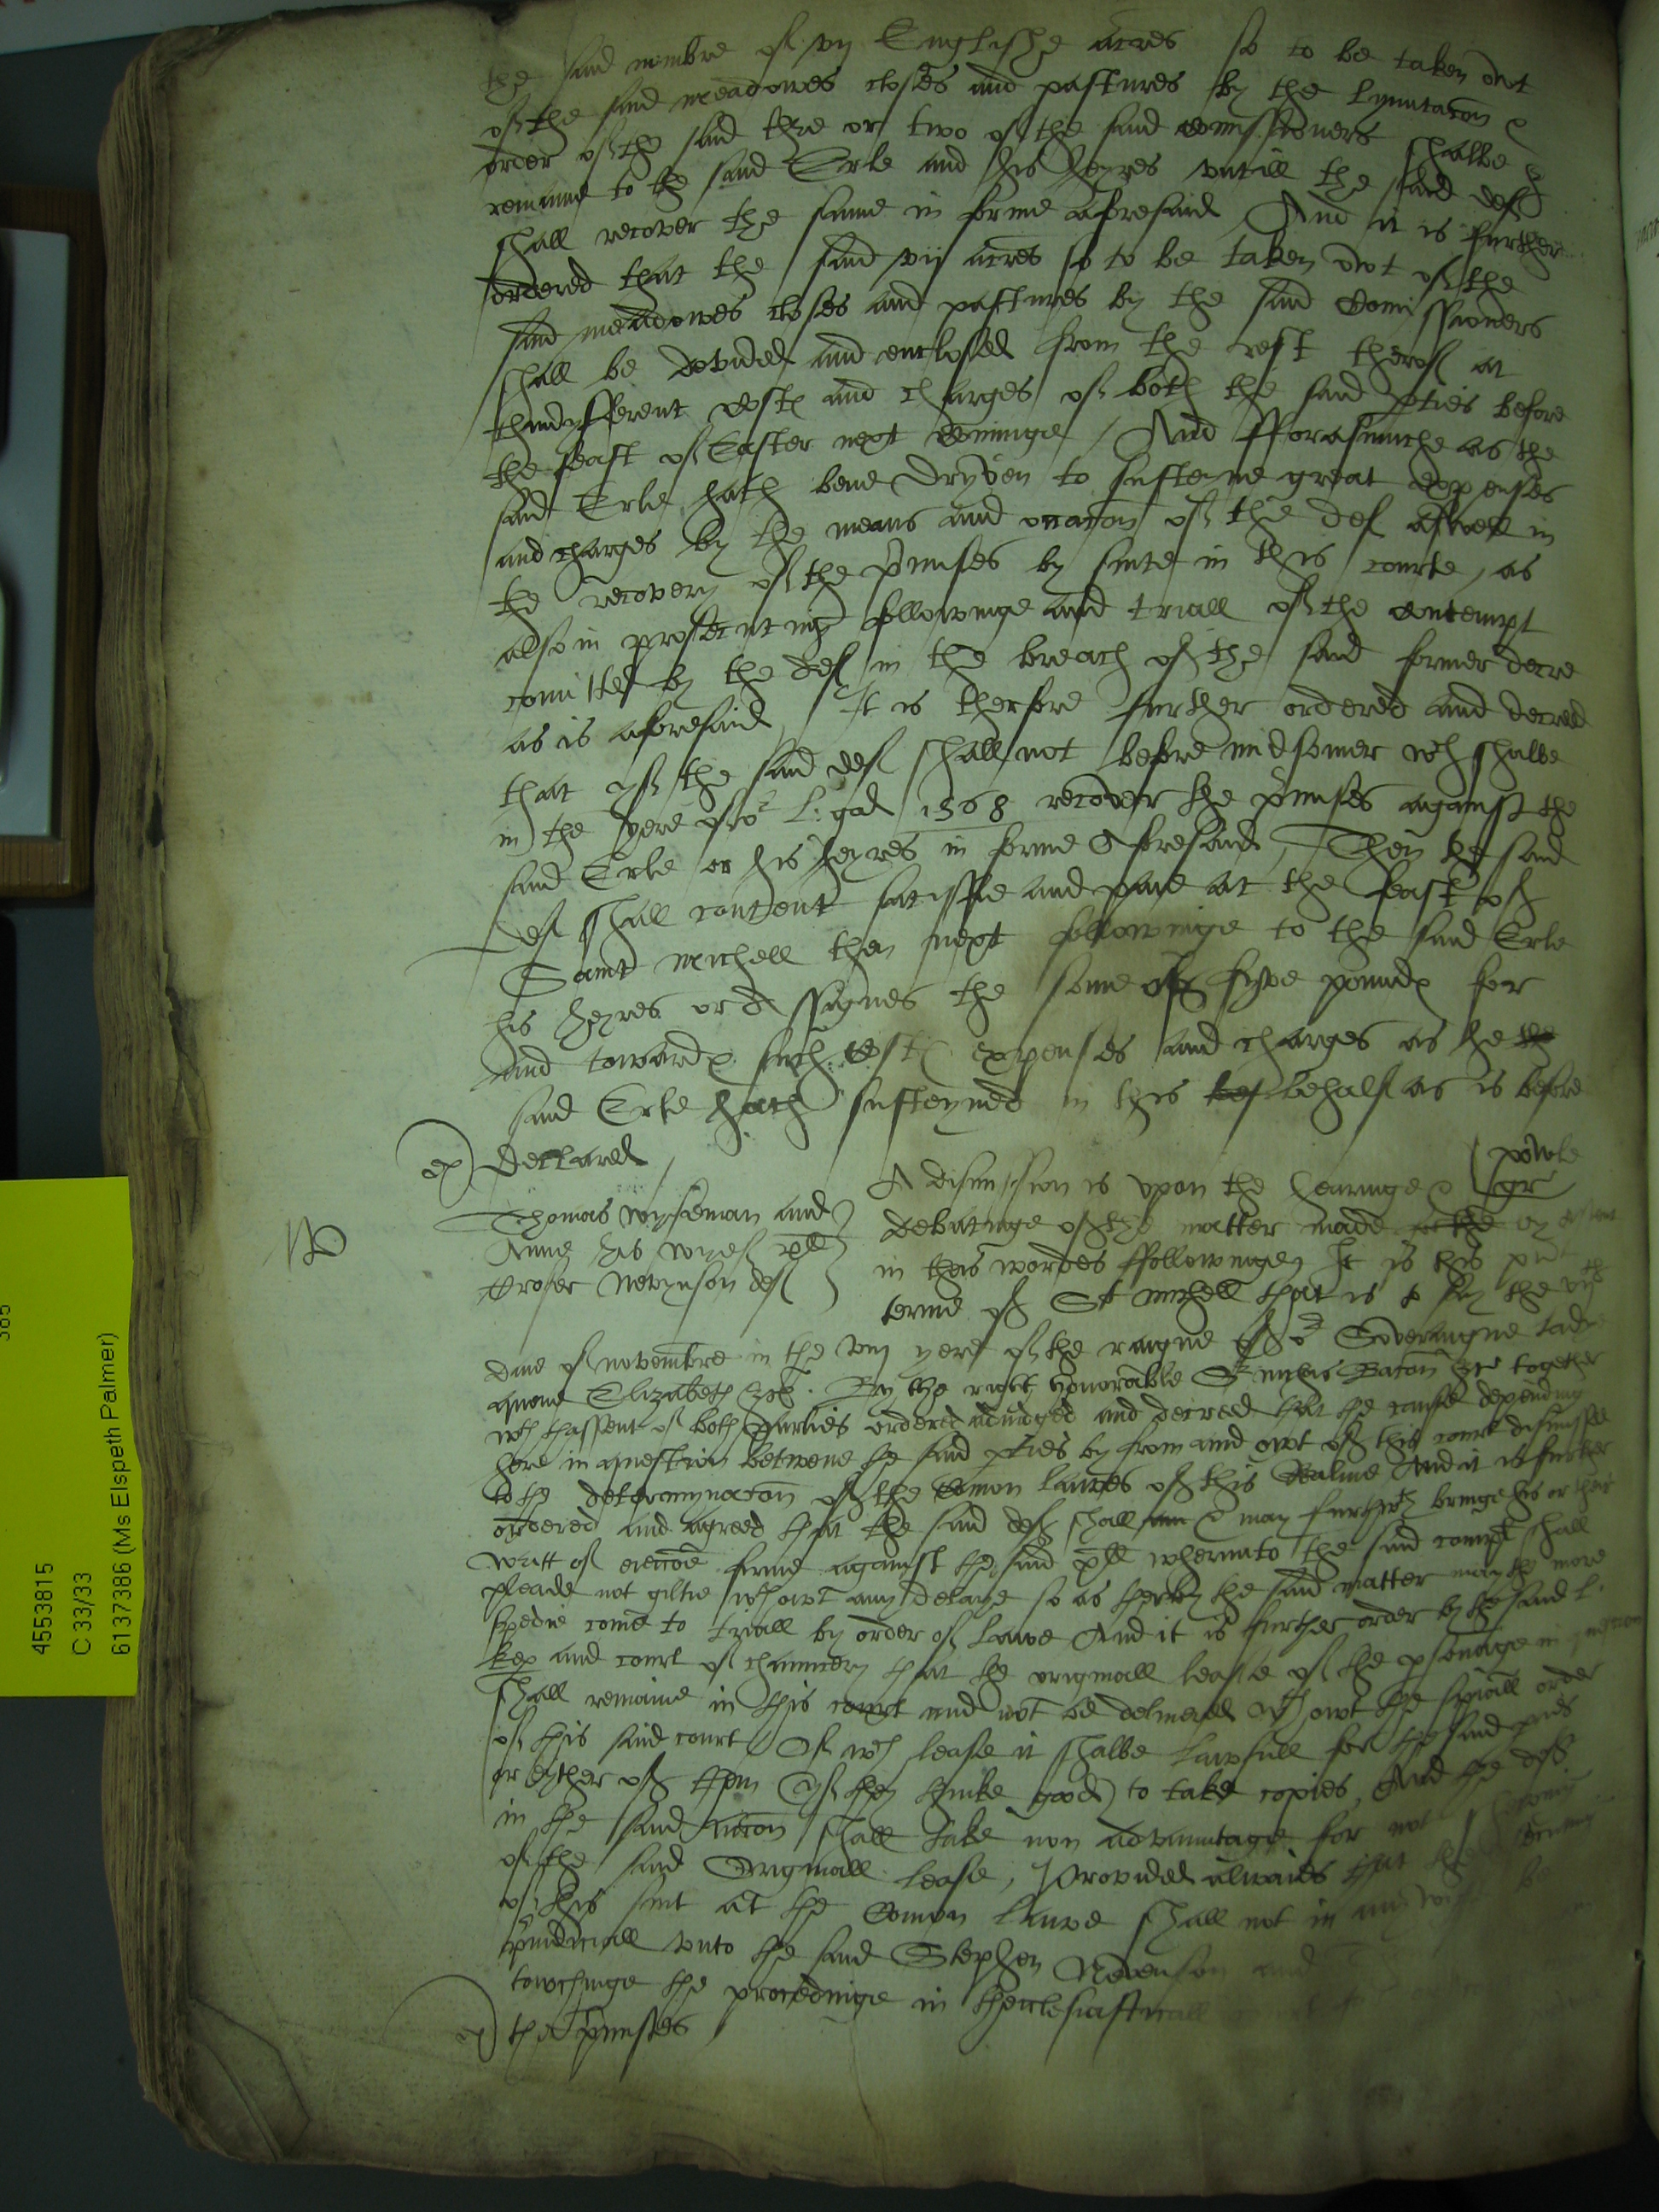 the said nombre of vij Englishe acres so to be taken owt
of the said meadowes closes and pastures by the lymitacon &
order of the said thre or two of the said comissioners shalbe &
remayne to the said Erle and his heyres vntill the said def
shall recover the same in forme aforesaid And it is further
ordered that the said vij acres so to be taken owt of the
said meadowes closes and pastures by the said Comissioners
shall be devided and enclosed from the rest therof at
thindyfferent costes and charges of both the said pties before
the feast of Easter next cominge / And fforasmuche as the
said Erle hath bene dryven to susteyne great expenses
and charges by the means and occacon of the def aswell in
the recovery of the pmisses by suite in this courte, as
also in prosecuting followinge and triall of the contempt
comitted by the def in the breach of the said former decre
as is aforesaid / It is therfore further ordered and decreed
that yf the said def shall not before midsomer wch shalbe
in the yere of or L: god 1568 recover the pmisses against the
said Erle or his heyres in forme Aforesaid, Then the said
def shall content satisfie and paie at the feast of
Saint michell then next followinge to the said Erle
his heyres or Assignes the some of fyve poundes for
and towardes such costes expenses and charges as he the
said Erle hath susteyned in this behalf as is before
ex) declared /
powle
gr
A dismission is vpon the hearinge &
Thomas wyseman and debatinge of the matter made
Anne his wyef pll in theis wordes ffollowinge It is this pnt
Nevynson def terme of St michell that is to say the vijth
daie of novembre in the viij yere of the raigne of or Soveraigne ladie
quene Elizabeth &c. By the right honorable Sr nichas Bacon &c together
wth thassent of both parties ordered adiudged and decreed that the cause depending
here in question betwene the said pties by from and owt of this court dismissed
to the determynacon of the Comon lawes of this Realme And it is further
ordered and agreed that the said def shall & may furthwth bringe his or their
writt of eieccoe firme against the said pll wherunto the said compt shall
pleade not giltie wthowt any delaye so as therby the said matter may the more
spedie come to triall by order of lawe And it is further order by the said L.
kep and court of chauncery that the originall lease of the psonage in question
shall remaine in this court and not be delivered wthowt the spiall order
of this said court Of wch lease it shalbe lawfull for the said pties
or eyther of them (yf they thinke good) to take copies, And the def
in the said accon shall take non advauntage for not shewing
of the said Originall lease, Provided alwaies that the
of this suit at the Comon lawe shall not in any wise be
preiudiciall vnto the said Stephen Nevenson and
towchinge the procedinge in thecclesiasticall
ex) the pmisses
4553815
C 33/33
6137386 (Ms Elspeth Palmer)